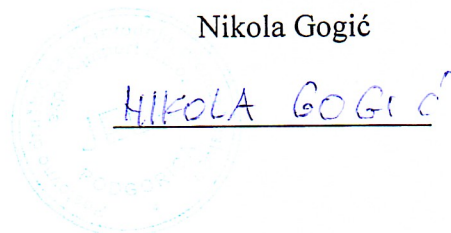 Nikola Gogić
NIKOLA GOGIĆ